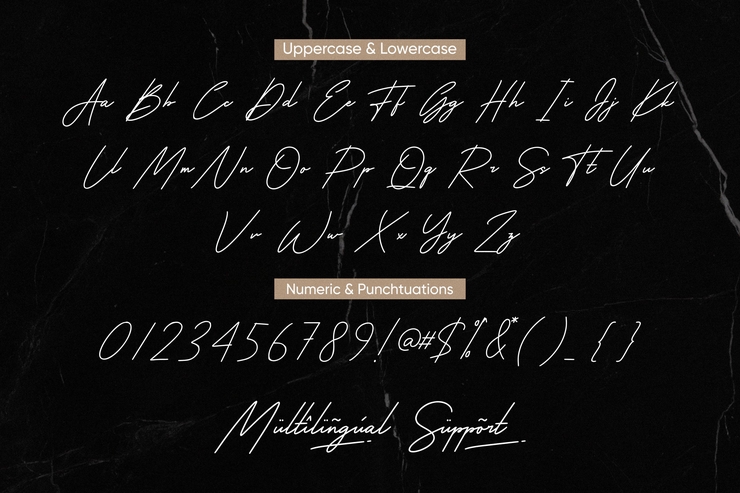 Uppercase & Lowercase
Aa Bb Cc Dd Ee Ff Gg Hh Ii Jj Kk
Ll Mm Nn Oo Pp Qq Rr Ss Tt Uu
Vv Ww Xx Yy Zz
Numeric & Punchtuations
0123456789!@#$%^&*()_{}
Mültîlïñgúal Süppõrt